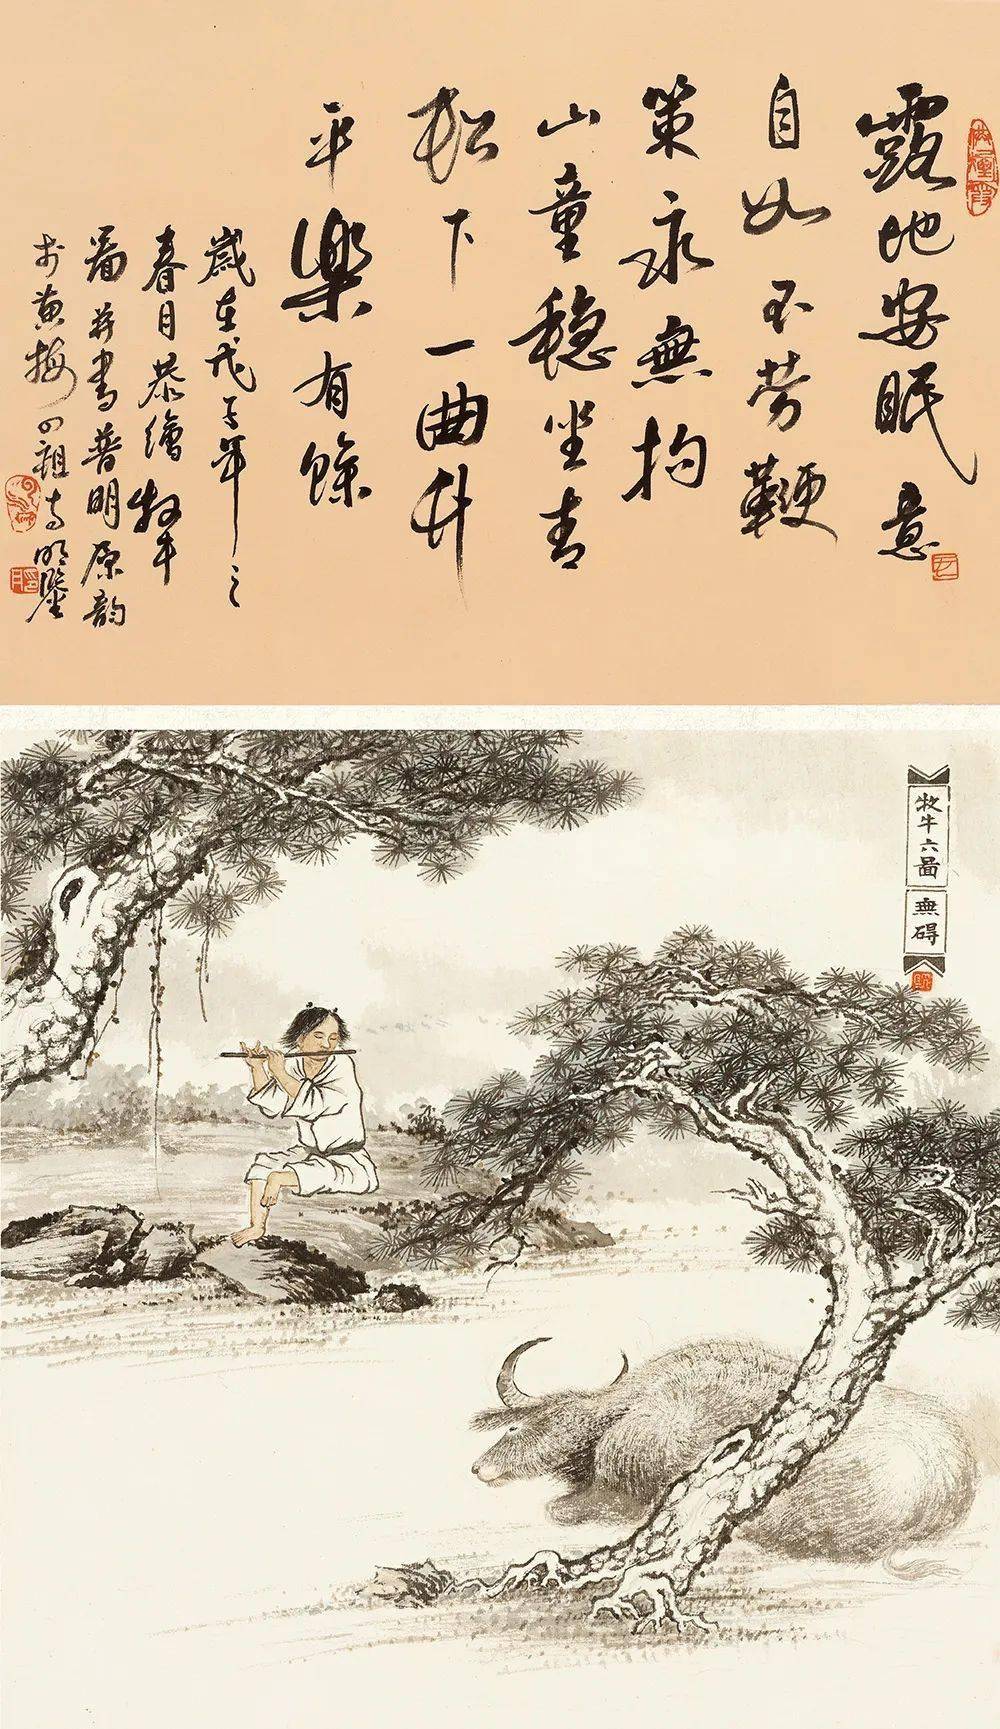 露地安眠意
自如不劳鞭
策永無拘
山童稳坐青
松下一曲升
平樂有餘
歲在戊子年之
春月恭繪牧牛
圖并書普明原韵
於黄梅四祖寺明鑒
牧牛六圖
無碍